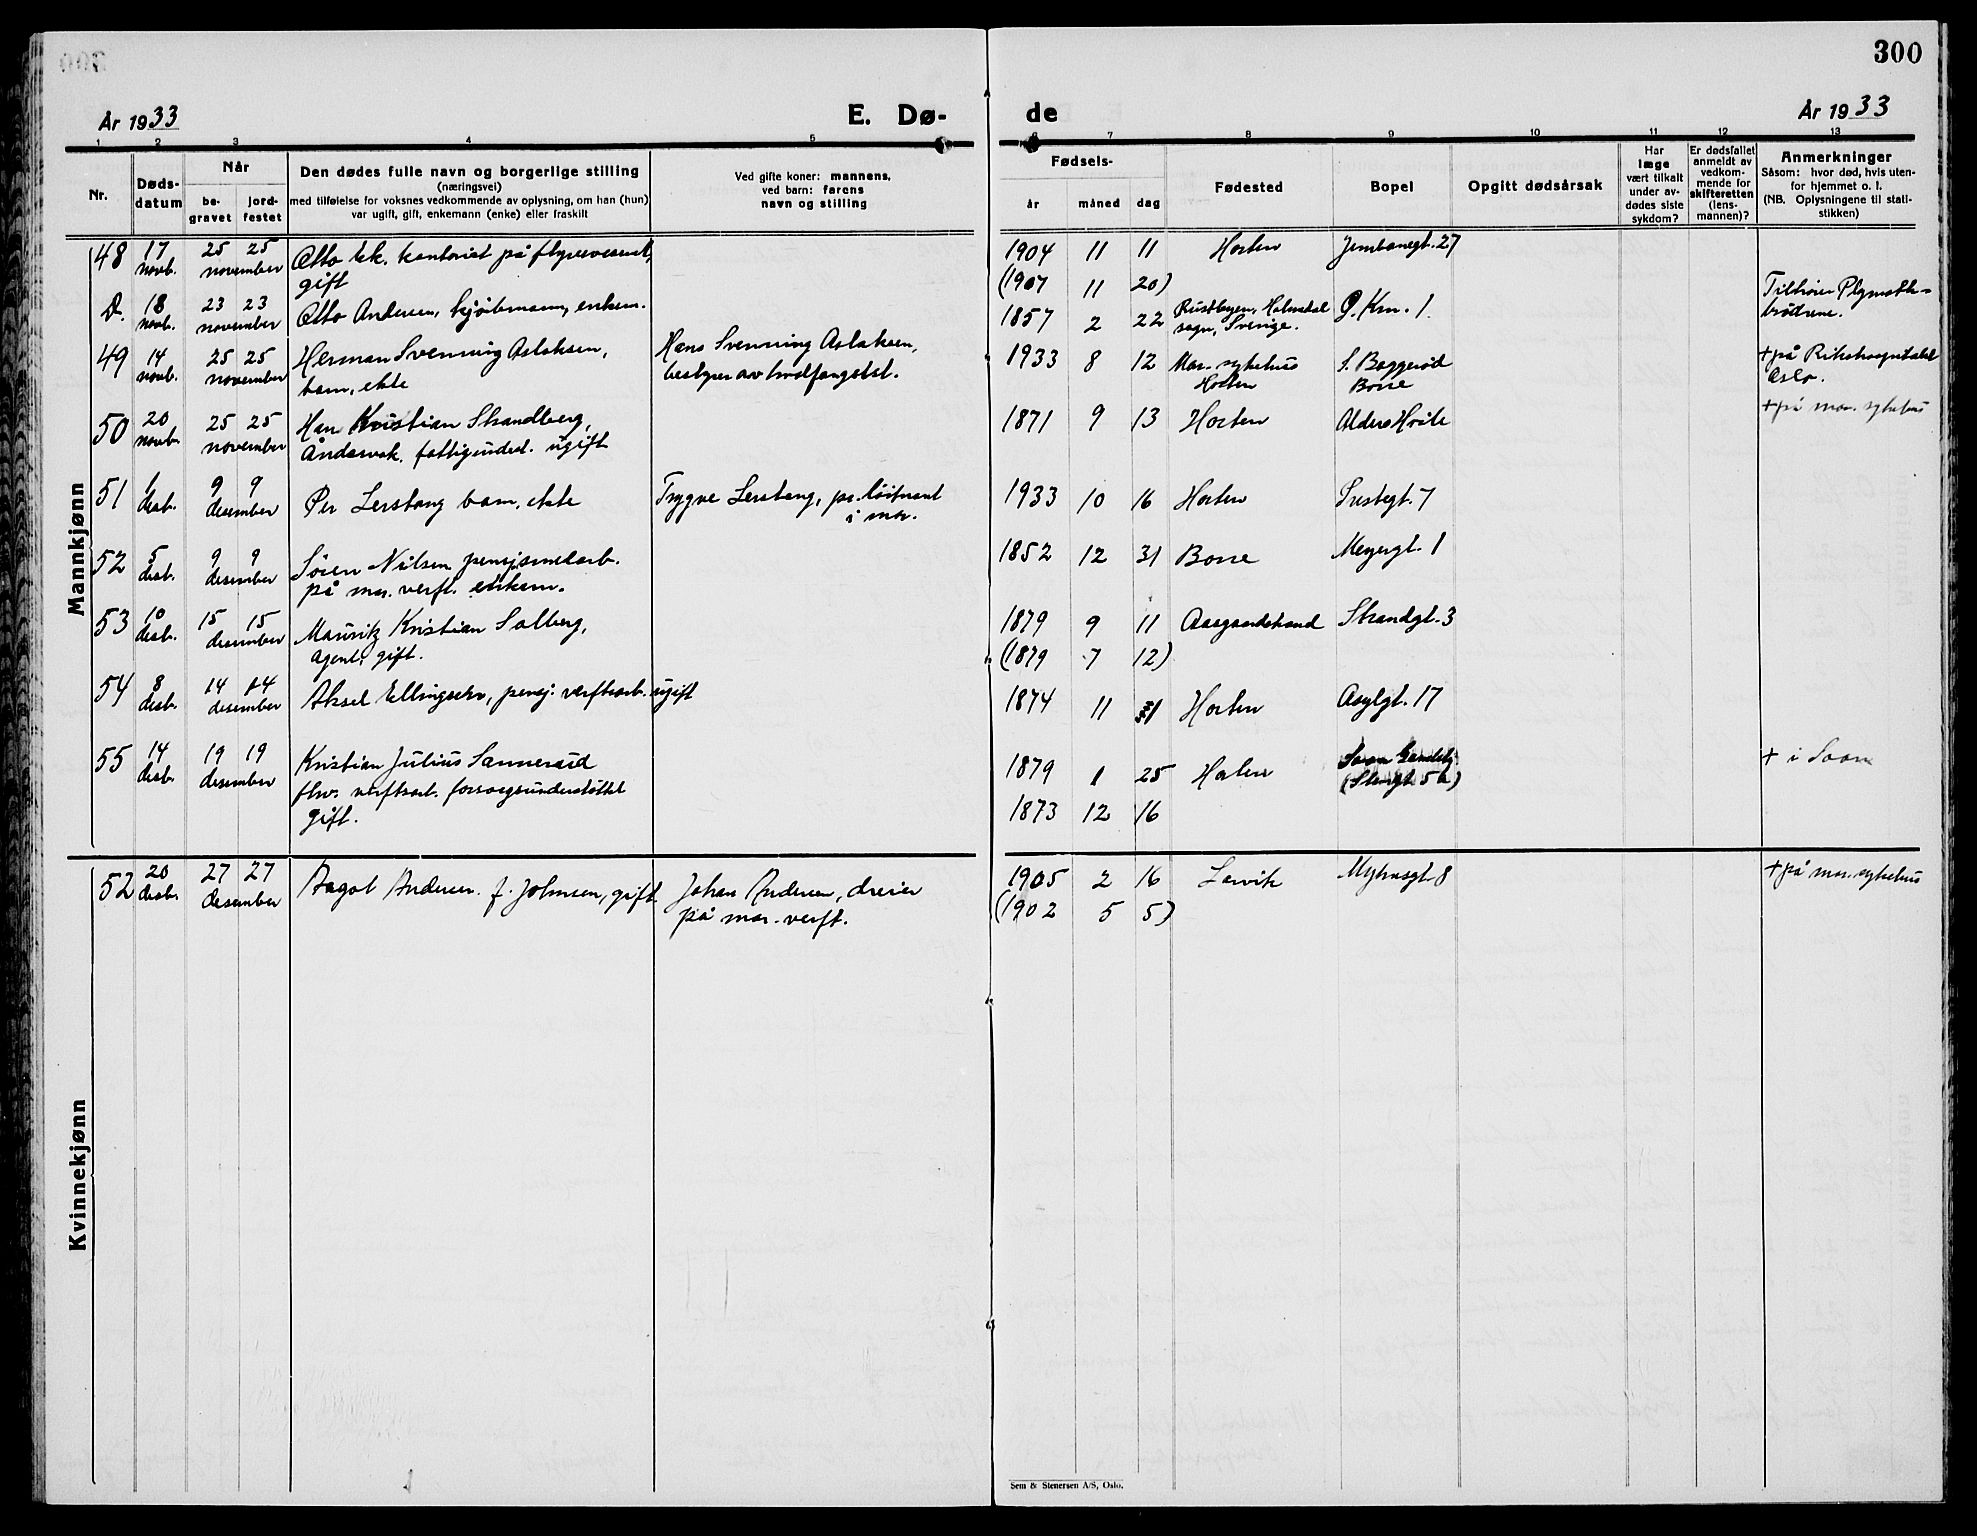 300
År 1933
E. Dø-
de
År 1933
1 2 3 4 5
6 7 8 9 10 11 12 13
Nr.
Døds-
datum
Når
be-
gravet
jord-
festet
Den dødes fulle navn og borgerlige stilling
(næringsvei)
med tilføielse for voksnes vedkommende av oplysning, om han (hun)
var ugift, gift, enkemann (enke) eller fraskilt
Ved gifte koner: mannens,
ved barn: farens
navn og stilling
Fødsels-
år måned dag
Fødested
Bopel
Opgitt dødsårsak
Har
læge
vært tilkalt
under av-
dødes siste
sykdom?
Er dødsfallet
anmeldt av
vedkom-
mende for
skifteretten
(lens-
mannen)?
Anmerkninger
Såsom: hvor død, hvis uten-
for hjemmet o. l.
(NB. Oplysningene til stati-
stikken)
Mannkjønn
48 17 novb. 25 25 november
Otto kontorist på flyvevesenet,
gift
1904 11 11 Horten Jernbanegt. 27
(1907 11 20)
D. 18 novb. 23 23 november
Otto Andersen, kjøbmann, enkem.
1857 2 22 Holmedal
sogn, Sverige. 1.
Tilhører Plymouth-
brødrene.
49 14 novb. 25 25 november
Herman Svenning Aslaksen,
barn, ekte
Hans Svenning Aslaksen,
bestyrer av
1933 8 12 Mar. sykehus
Horten
S. Baggerød
Borre
+ på Rikshospitalet
Oslo.
50 20 novb. 25 25 november
Kristian Strandberg,
fattigunderst. ugift
1871 9 13 Horten Alders Hvile
+ på mar. sykehus
51 1 desb. 9 9 desember
Per Lerstang barn, ekte
Trygve Lerstang, pr. løitnant
i mar.
1933 10 16 Horten 7
52 5 desb. 9 9 desember
Søren Nilsen pensjonsarb.
på mar. verft. enkem.
1852 12 31 Borre Meyergt. 1
53 10 desb. 15 15 desember
Mauritz Kristian Solberg,
agent, gift.
1879 9 11 Aasgaardstrand Strandgt. 3
(1879 7 12)
54 8 desb. 14 14 desember
Aksel Ellingsen, pensj. verftsarb. ugift
1874 11 Horten Asylgt. 17
55 14 desb. 19 19 desember
Kristian Julius Sannerød
fhv. verftsarb. forsorgsunderstøttet
gift.
1879 1 25 Horten
Soon
+ i Soon
1873 12 16
Kvinnekjønn
52 20 desb. 27 27 desember
Aagot Andersen f. Johnsen, gift
Johan Andersen, dreier
på mar. verft.
1905 2 16 Larvik 8
(1902 5 5)
+ på mar. sykehus
Sem & Stenersen A/S, Oslo.